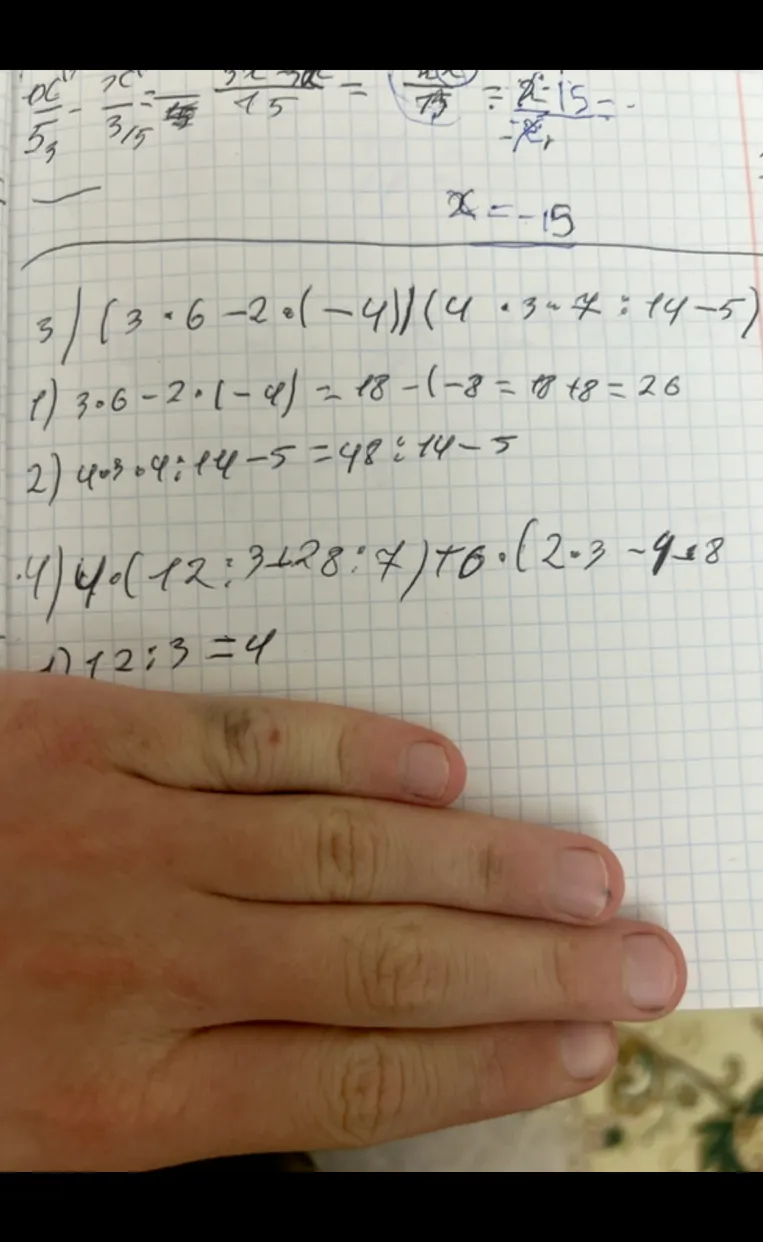 x/5 - x/3 = = 3x-5x/15 = /15 = 15 = -
x = -15
3) (3 · 6 - 2 · (-4)) (4 · 3 - 7 : 14 - 5)
1) 3·6 - 2 · (-4) = 18 - (-8 = 18 + 8 = 26
2) 4·3·4 : 14 - 5 = 48 : 14 - 5
4) 4 · (12 : 3 + 28 : 7) + 6 · (2 · 3 - 4 + 8
1) 12 : 3 = 4